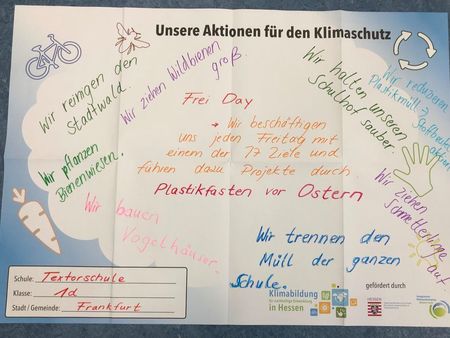 Unsere Aktionen für den Klimaschutz
Wir reinigen den
Stadtwald.
Wir ziehen Wildbienen
groß.
Wir halten unseren
Schulhof sauber
Wir reduzieren
Plastikmüll →
Frei Day
→ Wir beschäftigen
uns jeden Freitag mit
einem der 17 Ziele und
führen dazu Projekte durch
Plastikfasten vor Ostern
Wir pflanzen
Bienenwiesen.
Wir bauen
Vogelhäuser.
Wir ziehen
Schmetterlinge auf.
Wir trennen den
Müll der ganzen
Schule.
Schule: Textorschule
Klasse: 1d
Stadt / Gemeinde: Frankfurt
Klimabildung
in Hessen
gefördert durch
HESSEN